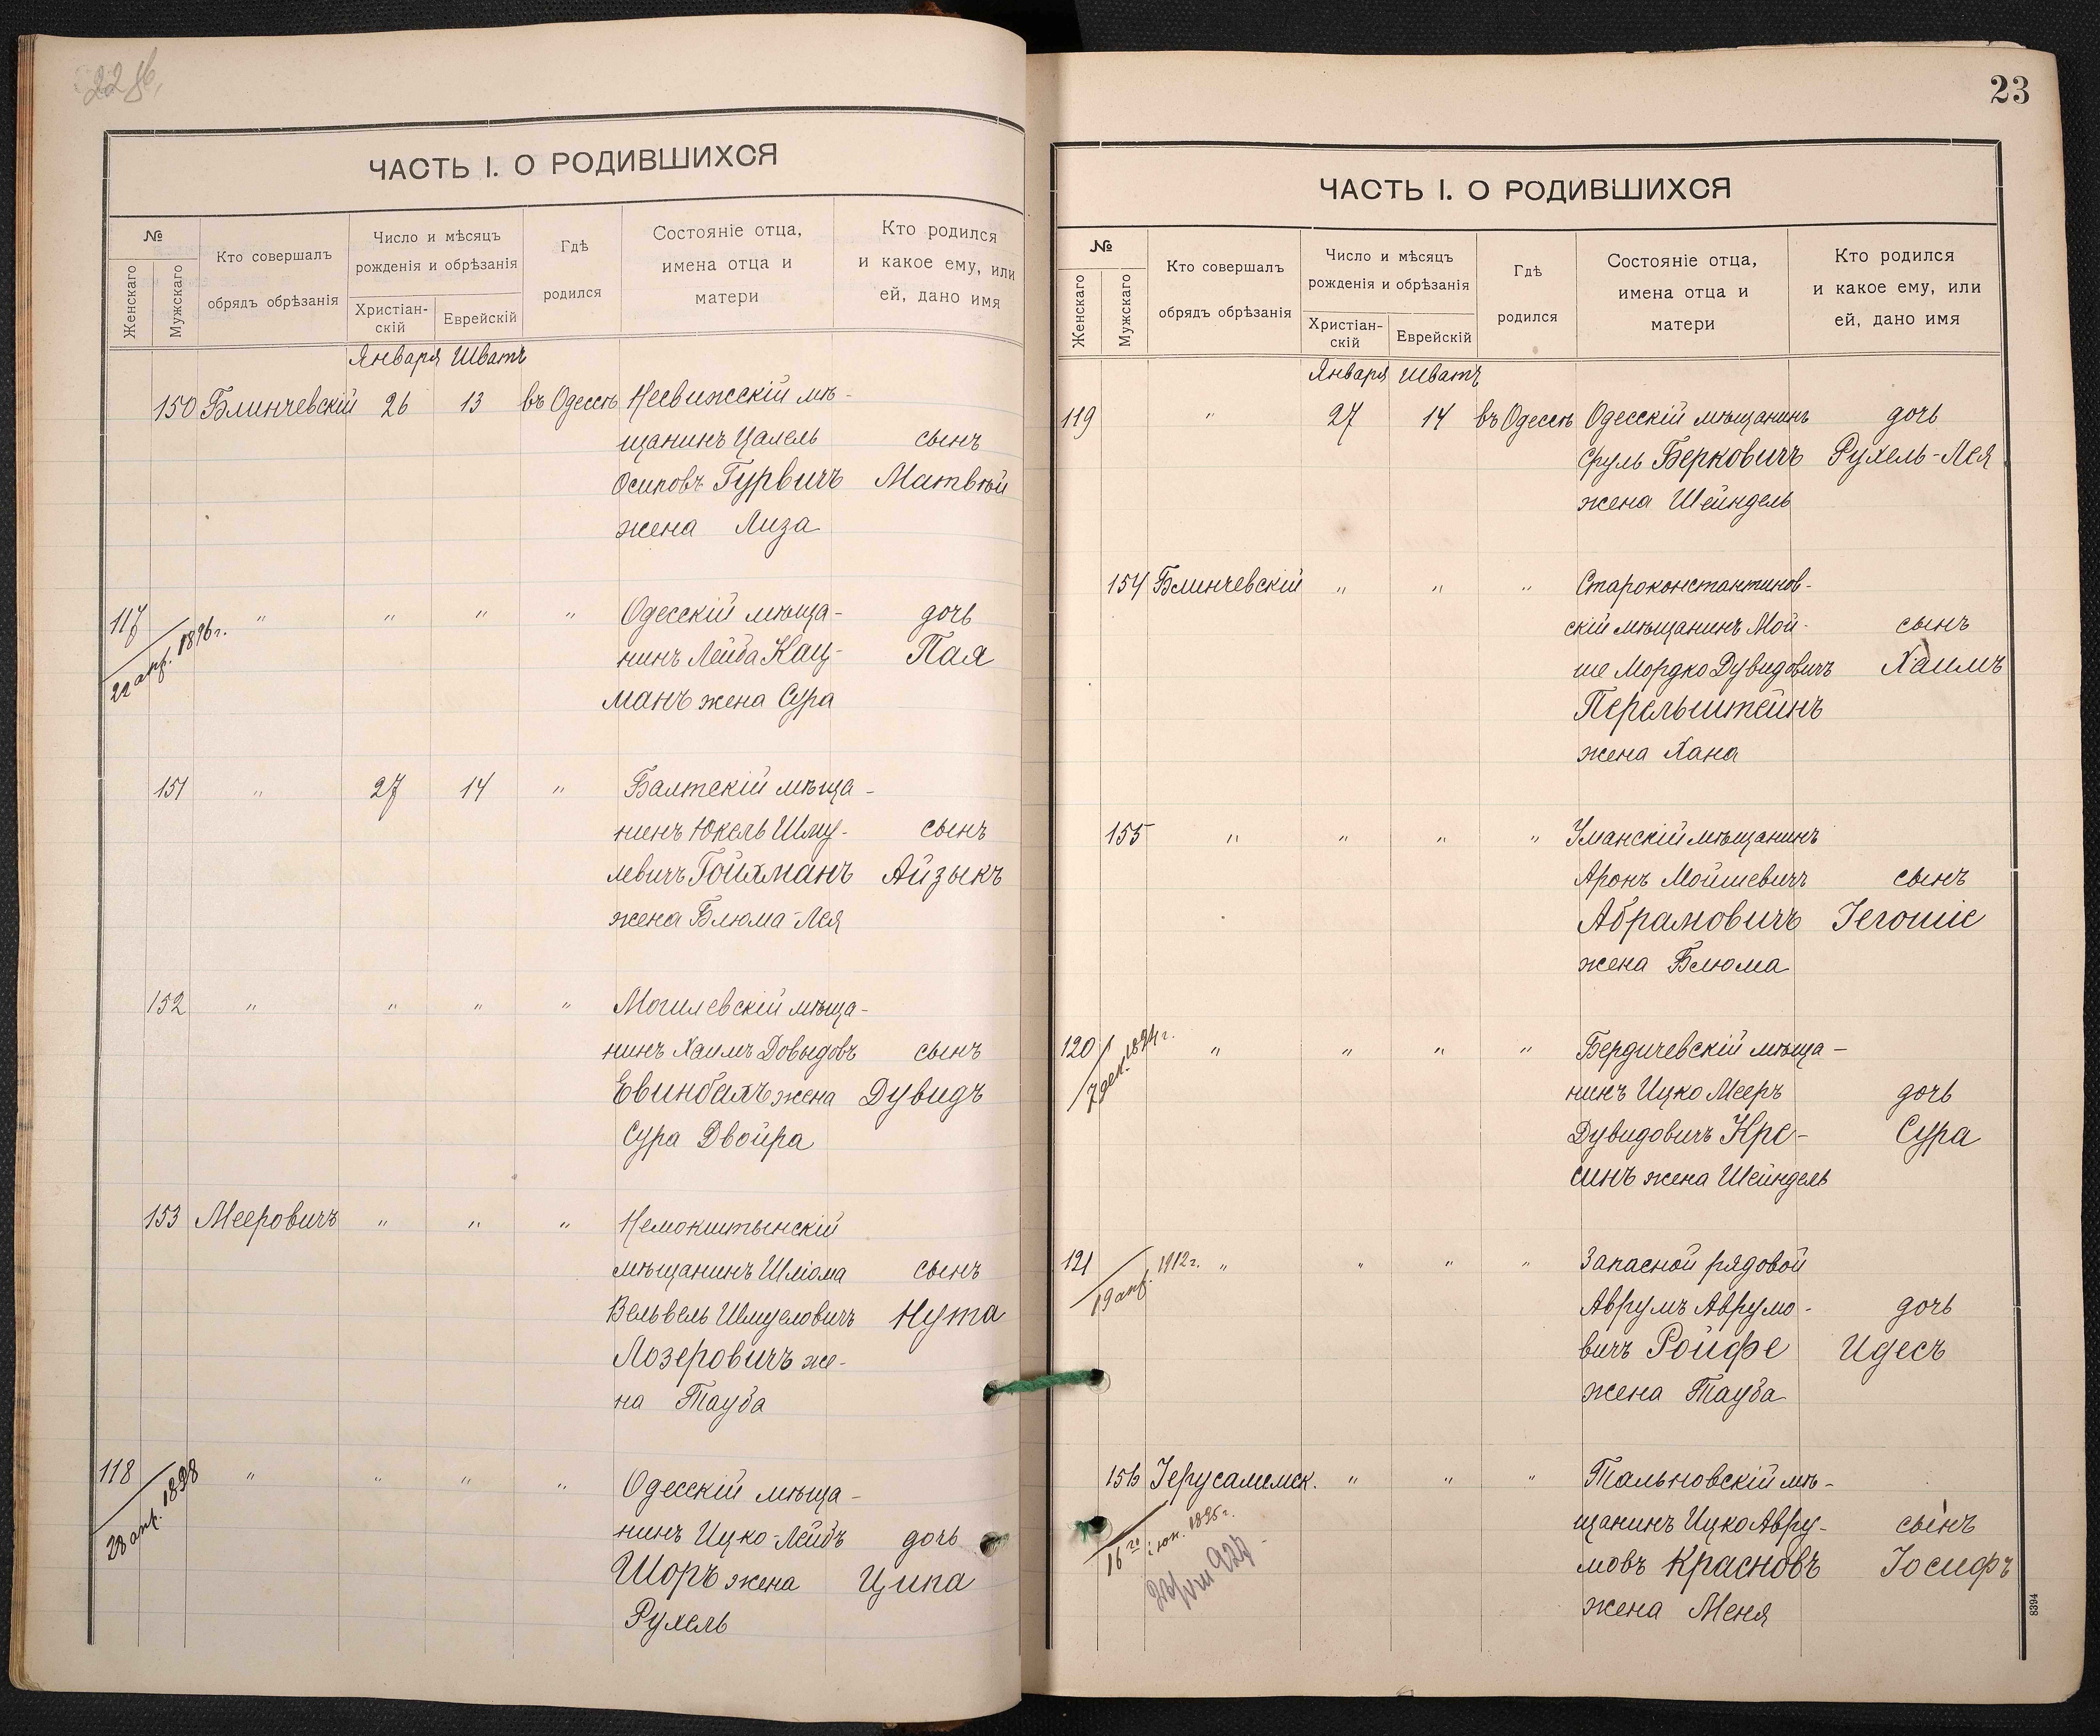 22 об.
ЧАСТЬ I. О РОДИВШИХСЯ
№
Женскаго
Мужскаго
Кто совершалъ
обрядъ обрѣзанія
Число и мѣсяцъ
рожденія и обрѣзанія
Христіан-
скій
Еврейскій
Гдѣ
родился
Состояніе отца,
имена отца и
матери
Кто родился
и какое ему, или
ей, дано имя
Января Шватъ
150 Блинчевскій 26 13 въ Одессѣ Несвижскій мѣ-
щанинъ Цалель сынъ
Осиповъ Гурвичъ Матвѣй
жена Лиза
117 " " " " Одесскій мѣща- дочь
22 апр. 1896 г.
нинъ Лейба Кац- Пая
манъ жена Сура
151 " 27 14 " Балтскій мѣща-
нинъ Юкель Шму- сынъ
левичъ Гойхманъ Айзыкъ
жена Блюма-Лея
152 " " " " Могилевскій мѣща-
нинъ Хаимъ Довыдовъ сынъ
Евинбахъ жена Дувидъ
Сура Двойра
153 Мееровичъ " " " Немокштынскій
мѣщанинъ Шліома сынъ
Вельвель Шмуеловичъ Нута
Лозеровичъ же-
на Тауба
118 " " " " Одесскій мѣща-
28 апр. 1898
нинъ Ицко-Лейбъ дочь
Шоръ жена Ципа
Рухель
23
ЧАСТЬ I. О РОДИВШИХСЯ
№
Женскаго
Мужскаго
Кто совершалъ
обрядъ обрѣзанія
Число и мѣсяцъ
рожденія и обрѣзанія
Христіан-
скій
Еврейскій
Гдѣ
родился
Состояніе отца,
имена отца и
матери
Кто родился
и какое ему, или
ей, дано имя
Января Шватъ
119 " 27 14 въ Одессѣ Одесскій мѣщанинъ дочь
Сруль Берковичъ Рухель-Лея
жена Шейндель
154 Блинчевскій " " " Староконстантинов-
скій мѣщанинъ Мой- сынъ
ше Мордко Дувидовичъ Хаимъ
Перельштейнъ
жена Хана
155 " " " " Уманскій мѣщанинъ
Аронъ Мойшевичъ сынъ
Абрамовичъ Іегошіе
жена Блюма
120 " " " " Бердичевскій мѣща-
7 дек. 1894 г.
нинъ Ицко Мееръ дочь
Дувидовичъ Кре- Сура
синъ жена Шейндель
121 " " " " Запасной рядовой
19 апр. 1912 г.
Аврумъ Аврумо- дочь
вичъ Ройфе Идесъ
жена Тауба
156 Іерусалимск. " " " Тальновскій мѣ-
16 го іюн. 1895 г.
щанинъ Ицко Авру- сынъ
мовъ Красновъ Іосифъ
жена Меня
23/VIII 927
8394